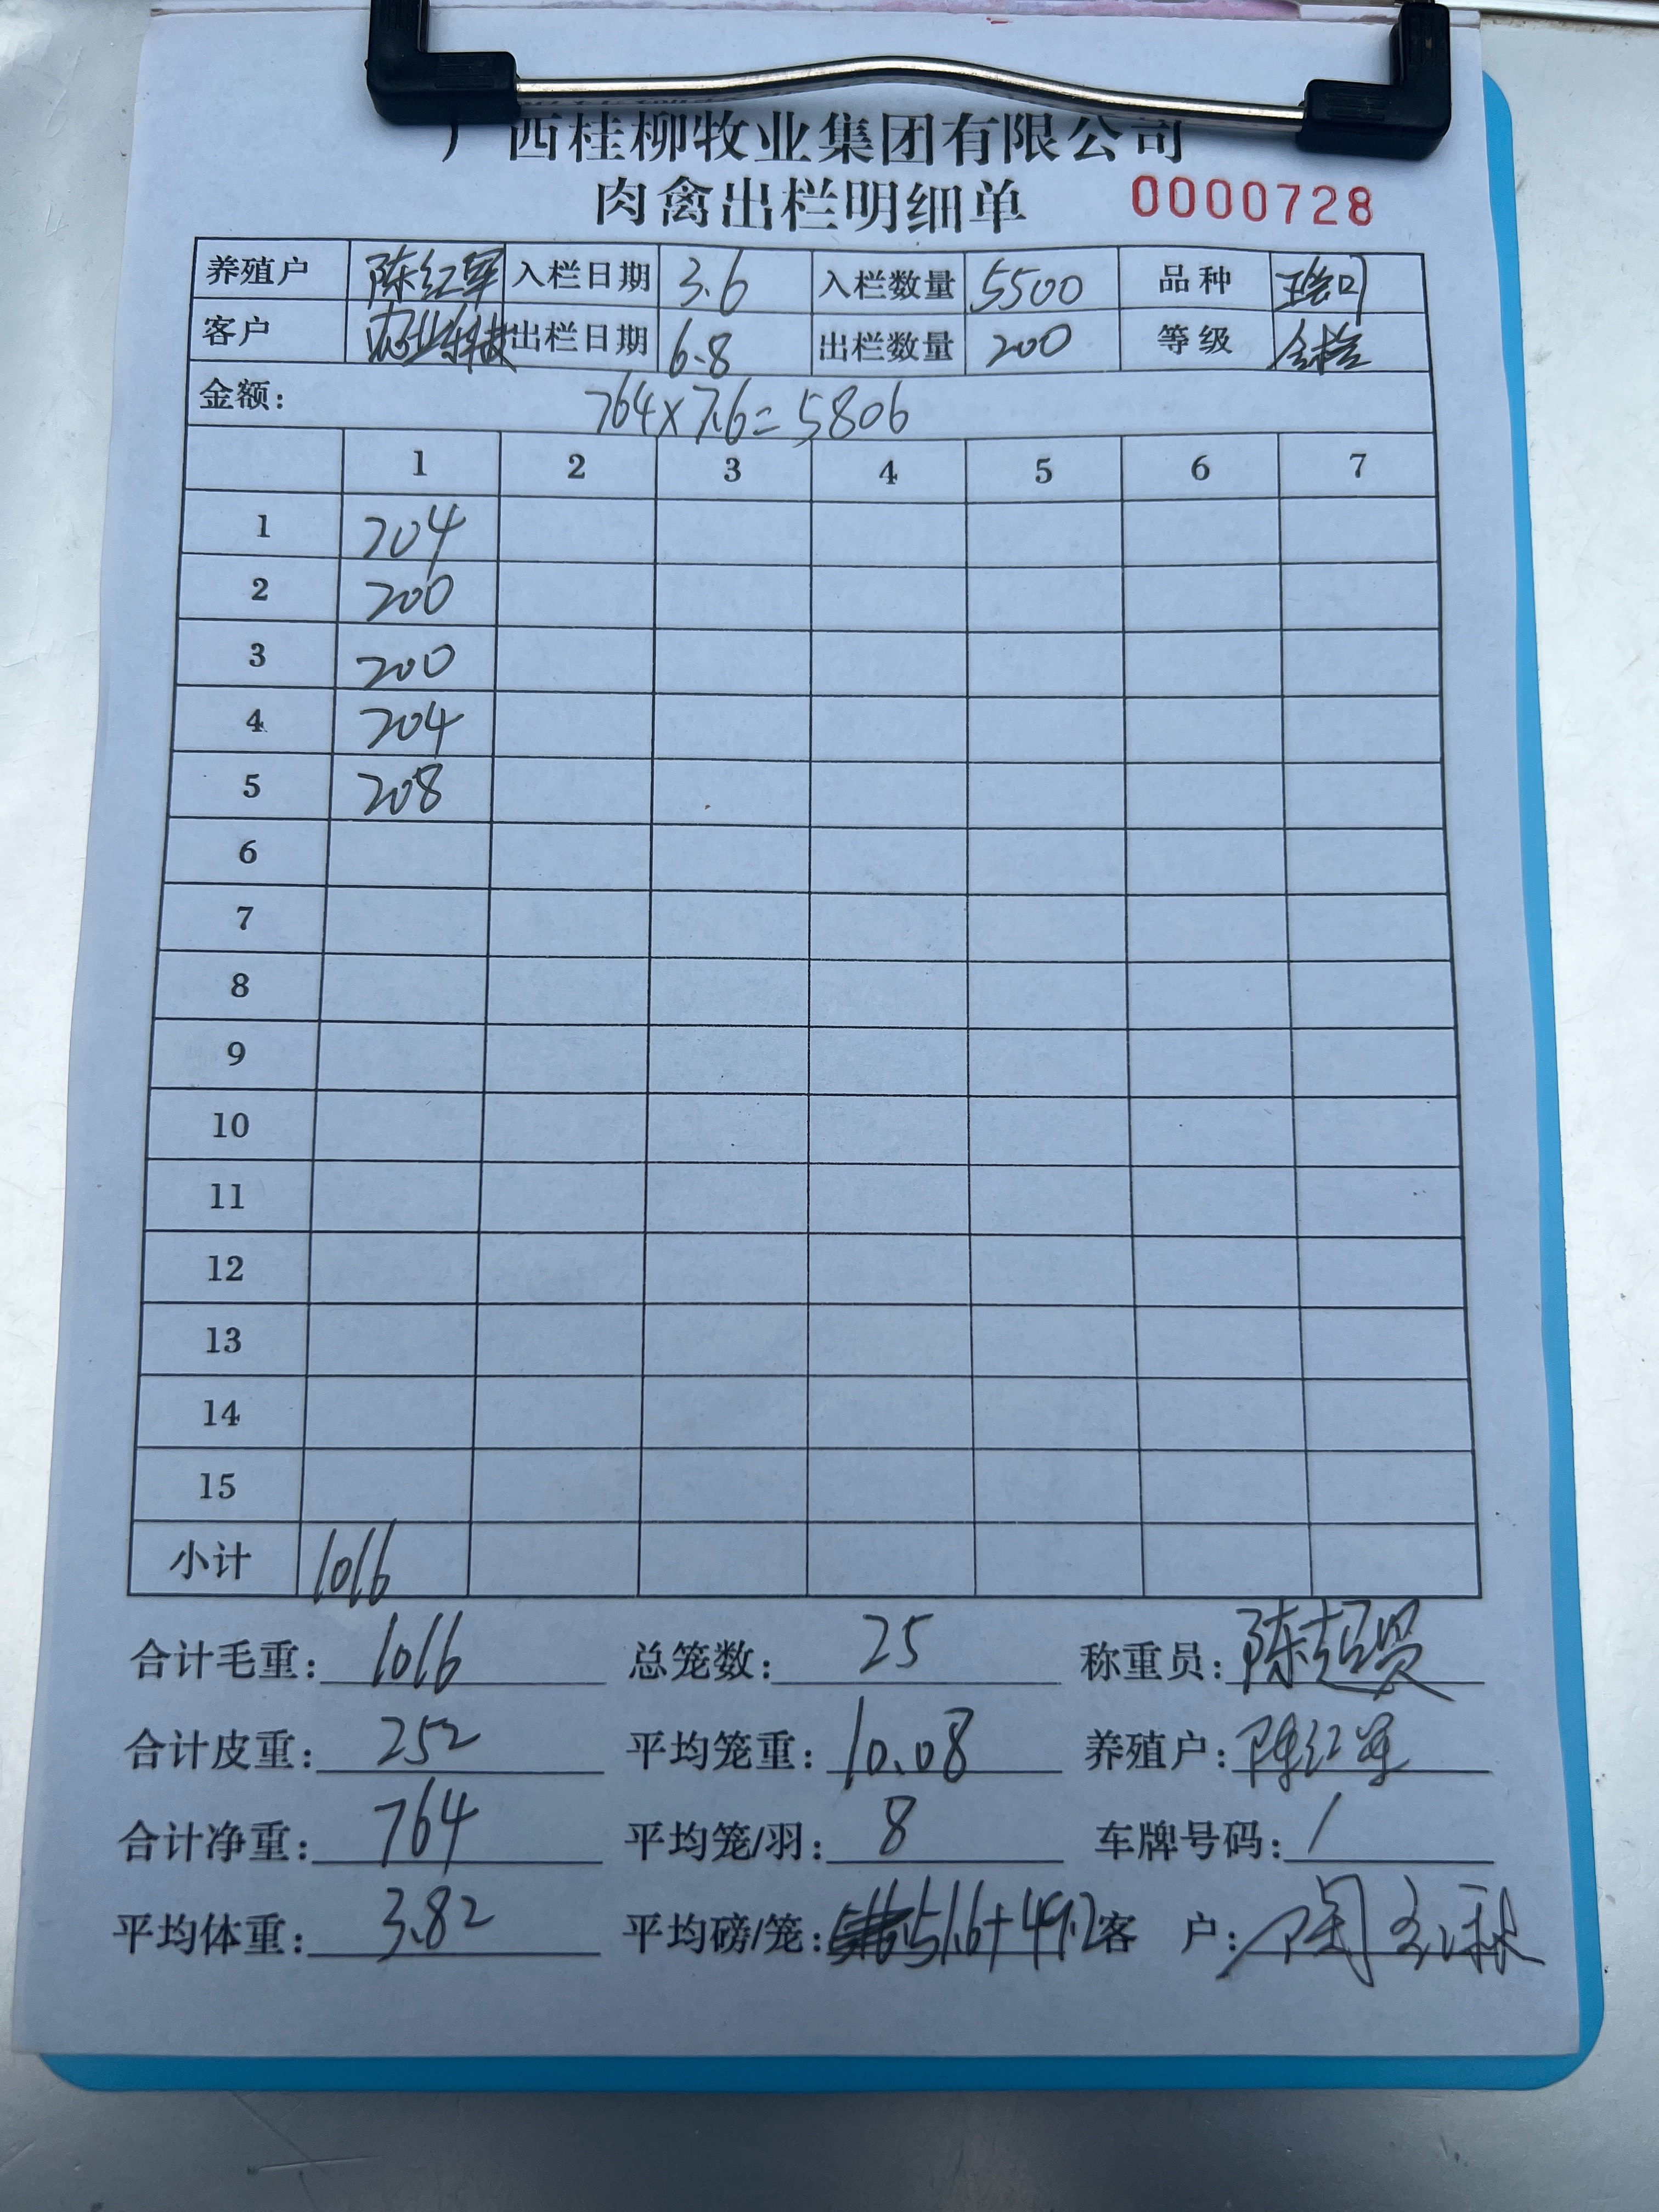 广西桂柳牧业集团有限公司
肉禽出栏明细单 0000728
养殖户 陈红军 入栏日期 3.6 入栏数量 5500 品种
客户 出栏日期 6.8 出栏数量 200 等级
金额: 764×7.6=5806
1 2 3 4 5 6 7
1 204
2 200
3 200
4 204
5 208
6
7
8
9
10
11
12
13
14
15
小计 1016
合计毛重: 1016 总笼数: 25 称重员: 陈超贤
合计皮重: 252 平均笼重: 10.08 养殖户: 陈红军
合计净重: 764 平均笼/羽: 8 车牌号码: /
平均体重: 3.82 平均磅/笼: 51.6+49.2 客 户: